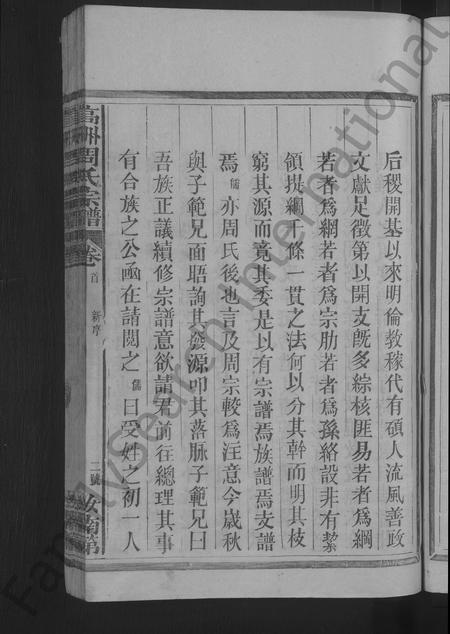 后稷開基以來明倫教稼代有碩人流風善政
文獻足徵第以開支旣多綜核匪易若者爲綱
若者爲網若者爲宗肋若者爲孫絡設非有挈
領提綱千條一貫之法何以分其幹而明其枝
窮其源而竟其委是以有宗譜焉族譜焉支譜
焉儒亦周氏後也言及周宗較爲注意今歲秋
與子範兄面晤詢其發源叩其落脉子範兄曰
吾族正議續修宗譜意欲請君前往總理其事
有合族之公函在請閱之儒曰受姓之初一人
高洲周氏宗譜 卷首 新序 二號 汝南第
FamilySearch International